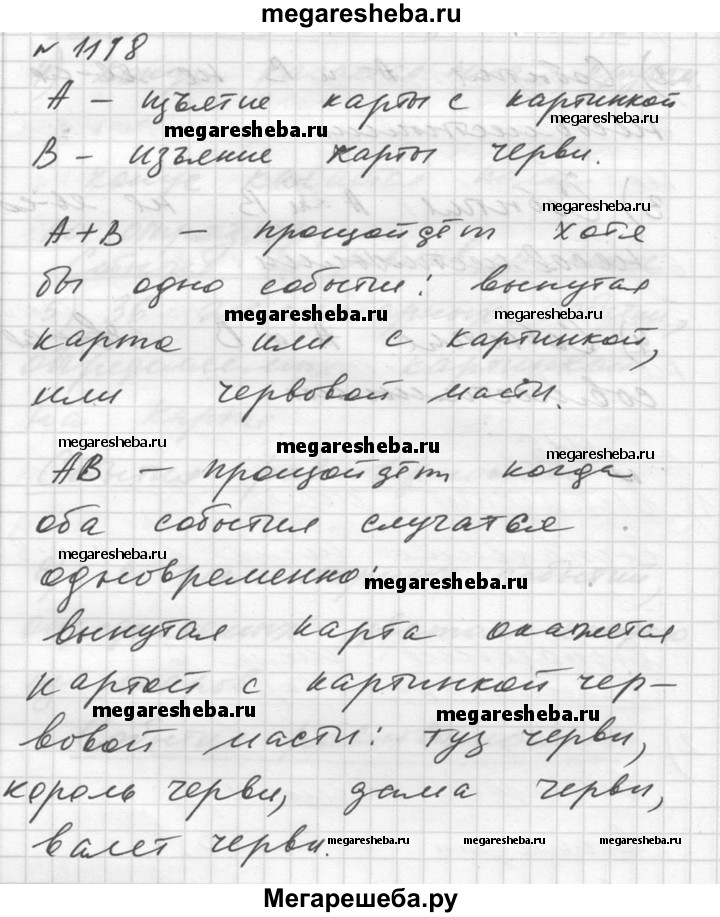 megaresheba.ru
N 1198
A – изъятие карты с картинкой
megaresheba.ru
B – изъяние карты черви.
megaresheba.ru
A+B – произойдёт хотя
бы одно событие: вынутая
megaresheba.ru megaresheba.ru
карта или с картинкой,
или червовой масти.
megaresheba.ru megaresheba.ru
AB – произойдёт когда
оба события случатся
megaresheba.ru
одновременно:
megaresheba.ru
вынутая карта окажется
картой с картинкой чер-
megaresheba.ru megaresheba.ru
вовой масти: туз черви,
король черви, дама черви,
валет черви.
megaresheba.ru megaresheba.ru megaresheba.ru
Мегарешеба.ру